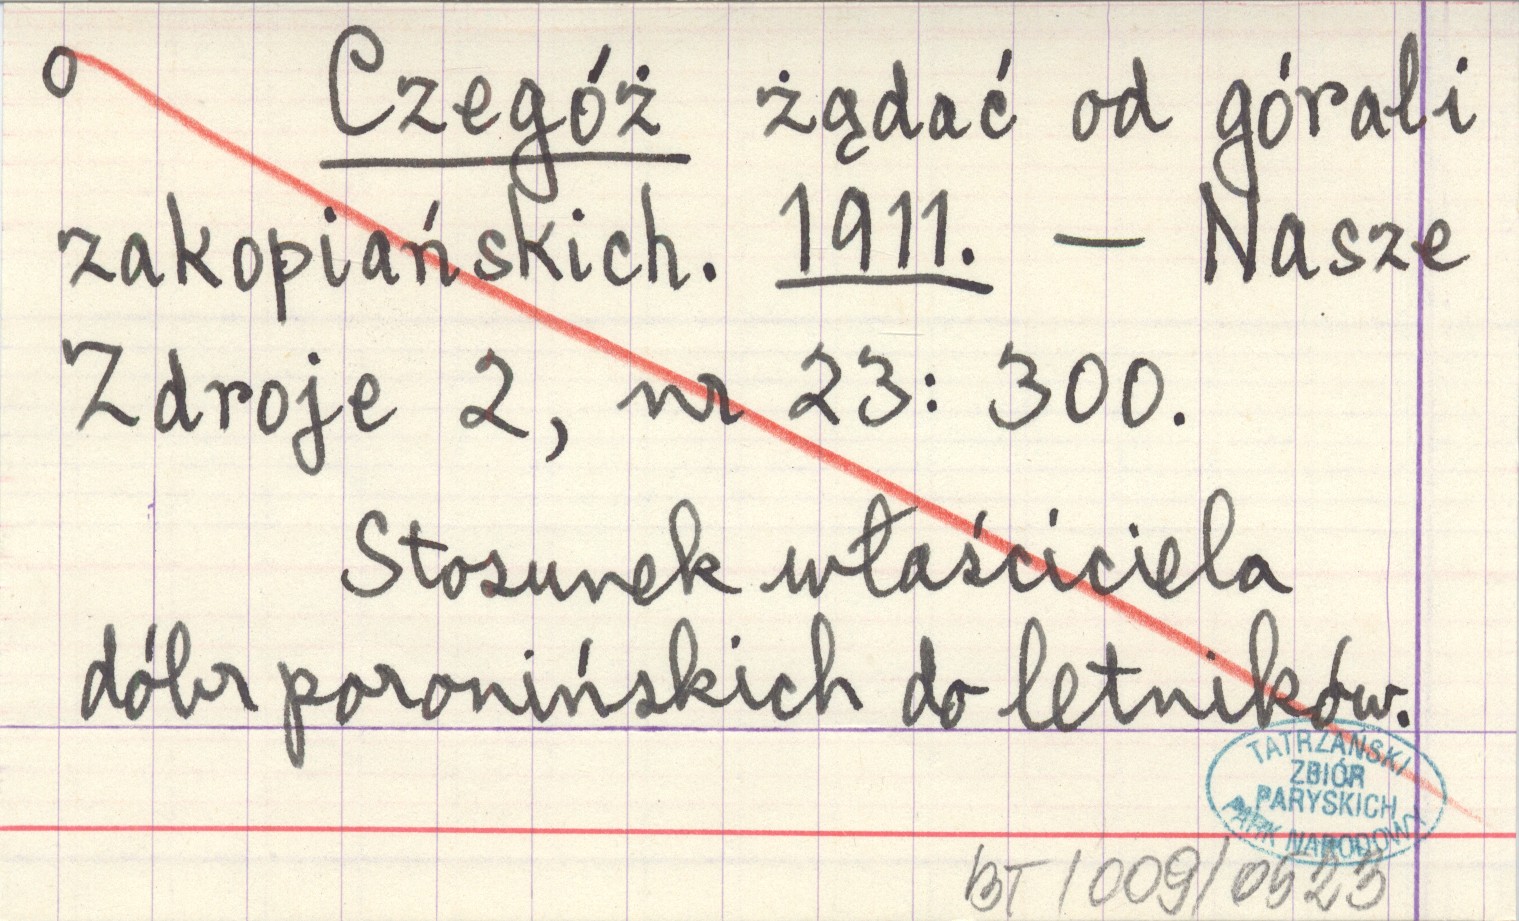 o Czegóż żądać od górali
zakopiańskich. 1911. — Nasze
Zdroje 2, nr 23: 300.
Stosunek właściciela
dóbr poronińskich do letników.
TATRZAŃSKI
ZBIÓR
PARYSKICH
PARK NARODOWY
BT/009/0523